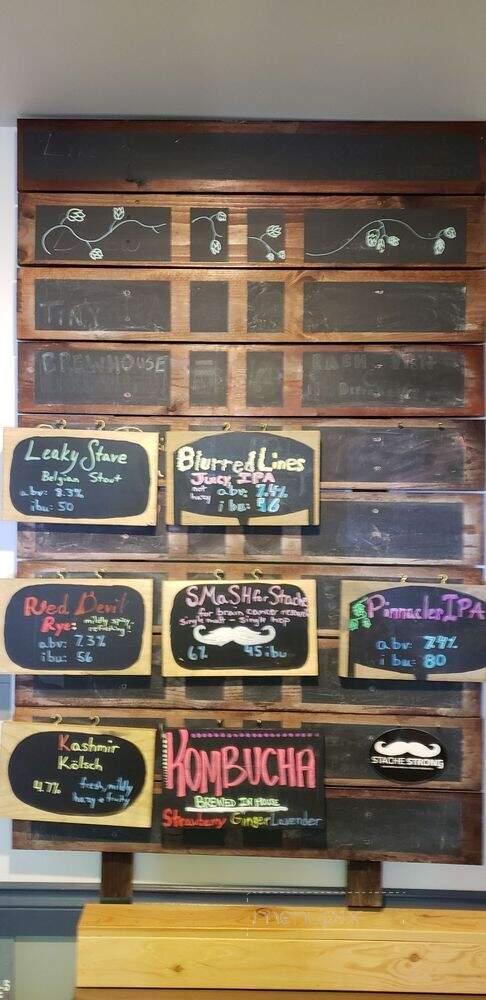 TINY
BREWHOUSE =
Leaky Stave
Belgian Stout
abv: 8.3%
ibu: 50
Blurred Lines
Juicy IPA
not hazy
abv: 7.4%
ibu: 46
Red Devil
Rye: mildly spicy, refreshing!
abv: 7.3%
ibu: 56
SMaSH for Stache
for brain cancer research
single malt - single hop
6% 45 ibu
Pinnacles IPA
abv: 7.4%
ibu: 80
Kashmir
Kölsch
4.7% fresh, mildly
hazy + fruity
KOMBUCHA
BREWED IN HOUSE
Strawberry Ginger Lavender
STACHE STRONG
menupix